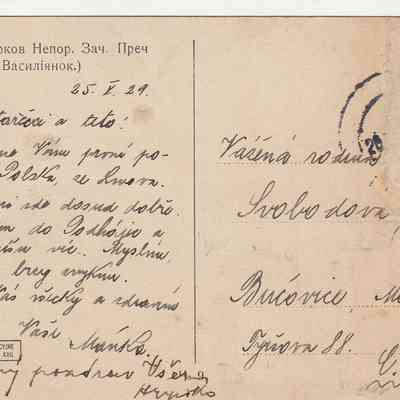 рков Непор. Зач. Преч
Василіянок.)
25. V. 29.
a teto!
Vám první po-
Polska, ze Lwova.
zde dosud dobře.
do Podhájce a
víc. Myslím
brzy zvyknu.
všecky a zdravím
Vaše Mánka.
pozdrav
Vážená rodina
Svobodova
Bučovice
Tyršova 88.